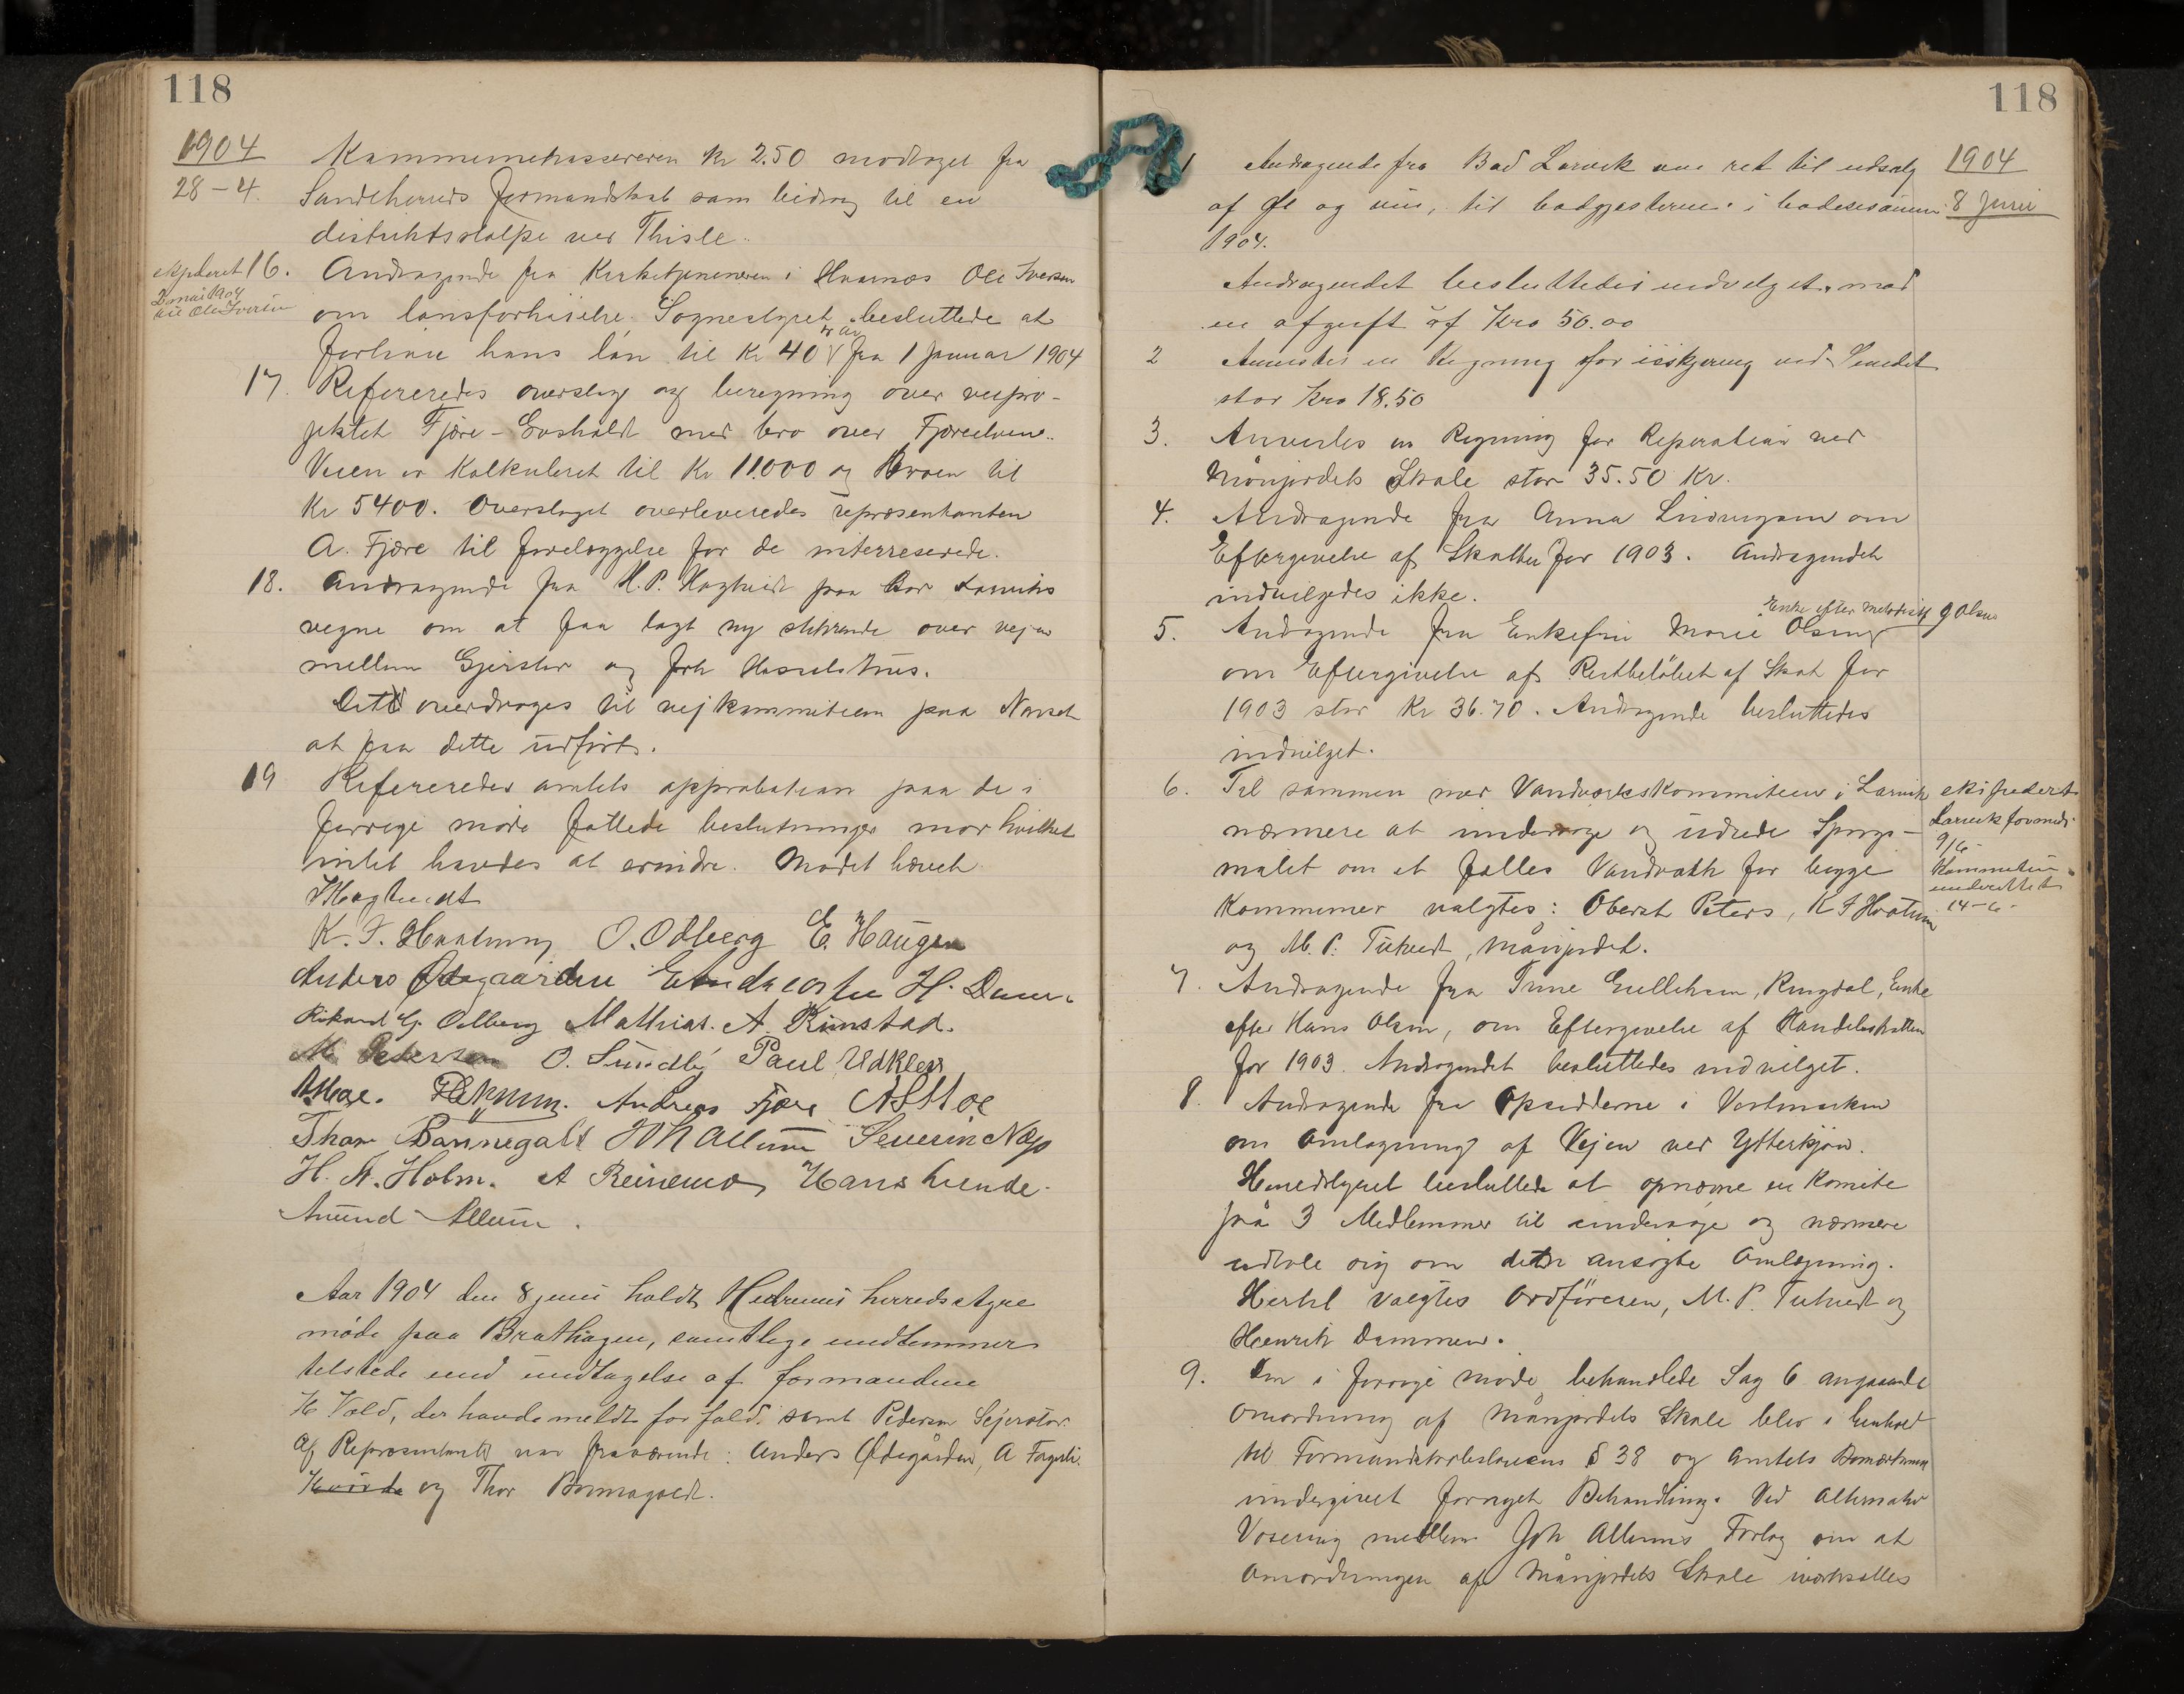 118
1904
28-4.
Kommunekassereren Kr 2.50 modtaget fra
Sandeherreds formandskab som bidrag til en
distriktsstolpe ved Thisle.
ekspederet 16. Andragende fra Kirketjeneren i Hvarnæs Ole Iversen
2 mai 1904
til Ole Iversen
om lønsforhøielse. Sognestyret besluttede at
forhøie hans løn til Kr 40 pr år fra 1 Januar 1904
17. Refereredes overslag og beregning over veipro-
jektet Fjære - Gusholdt med bro over Fjæreelven.
Veien er Kalkuleret til Kr 11.000 og Broen til
Kr 5400. Overslaget overleveredes repræsentanten
A. Fjære til forelæggelse for de interreserede.
18. Andragende fra H. P. Hagtvedt paa Bad Larviks
vegne om at faa lagt ny stikrende over vejen
mellem Gjerstad og Joh Hasselstrøms.
Dette overdrages til vejkommiteen paa Nanset
at faa dette udført.
19 Refereredes amtets approbation paa de i
forrige møde fattede beslutninger mod hvilket
intet havdes at erindre. Mødet hævet
Hagtvedt
K. F. Haatung O. Odberg E. Haugen
Anders Ødegaarden H. Dam
Rikard G. Odberg Mathias. A. Rimstad.
M. Pedersen O. Sundby Paul Udklev
A Moe. Andreas Fjære A S Moe
Thor Bonnegolt Joh Allum Severin Næss
H. A. Holm. A Reinemo Hans Lunde
Amund Allum.
Aar 1904 den 8 juni holdt Hedrums herredsstyre
møde paa Brathagen, samtlige medlemmer
tilstede med undtagelse af formændene
H Vold, der havde meldt forfald. samt Pedersen Gjerstad.
Af Repræsentanter var fraværende: Anders Ødegården, A Fagerli
og Thor Bonnegolt.
118
1904
8 Juni
1 Andragende fra Bad Larvik om ret til udsalg
af Øl og vin, til badgjesterne i badesesonen
1904.
Andragendet besluttedes indvilget mod
en afgift af Kro 50.00
2 Anvistes en Regning for isskjæring ved Semdet
stor Kro 18.50
3. Anvistes en Regning for Reperation ved
Månejordets Skole stor 35.50 Kr.
4. Andragende fra Anna Ludvigsen om
Eftergivelse af Skatten for 1903. Andragendet
indvilgedes ikke.
Enke efter Metodist G Olsen
5. Andragende fra Enkefru Marie Olsen
om Eftergivelse af Restbeløbet af Skat for
1903 stor Kr 36.70. Andragende besluttedes
indvilget.
6. Til sammen med Vandværkskommiteen i Larvik
nærmere at undersøge og udrede Spørgs-
målet om et fælles Vandværk for begge
Kommuner valgtes: Oberst Peters, K F Haatung
og M. P. Tutvedt, Månejordet.
ekspederet
Larvik formds
9/6
Kommiteen
underrettet
14-6-
7. Andragende fra Trine Gulliksen, Ringdal, Enke
efter Hans Olsen, om Eftergivelse af Handelsskatten
for 1903. Andragendet besluttedes indvilget.
8. Andragende fra Opsidderne i Vestmarken
om Omlægning af Vejen ved Ytterkjøn.
Herredstyret besluttede at opnævne en Komite
på 3 Medlemmer til undersøge og nærmere
udtale sig om den ansøgte Omlægning.
Hertil valgtes Ordføreren, M. P. Tutvedt og
Henrik Dammen.
9. Den i forrige møde behandlede Sag 6 angaaende
Omordning af Månejordets Skole blev i henhold
til Formandskabslovens § 38 og Amtets Bemærkning
undergivet fornyet Behandling. Ved Alternativ
Votering mellem Joh Allums Forlag om at
Omordningen af Månejordets Skole iværksættes